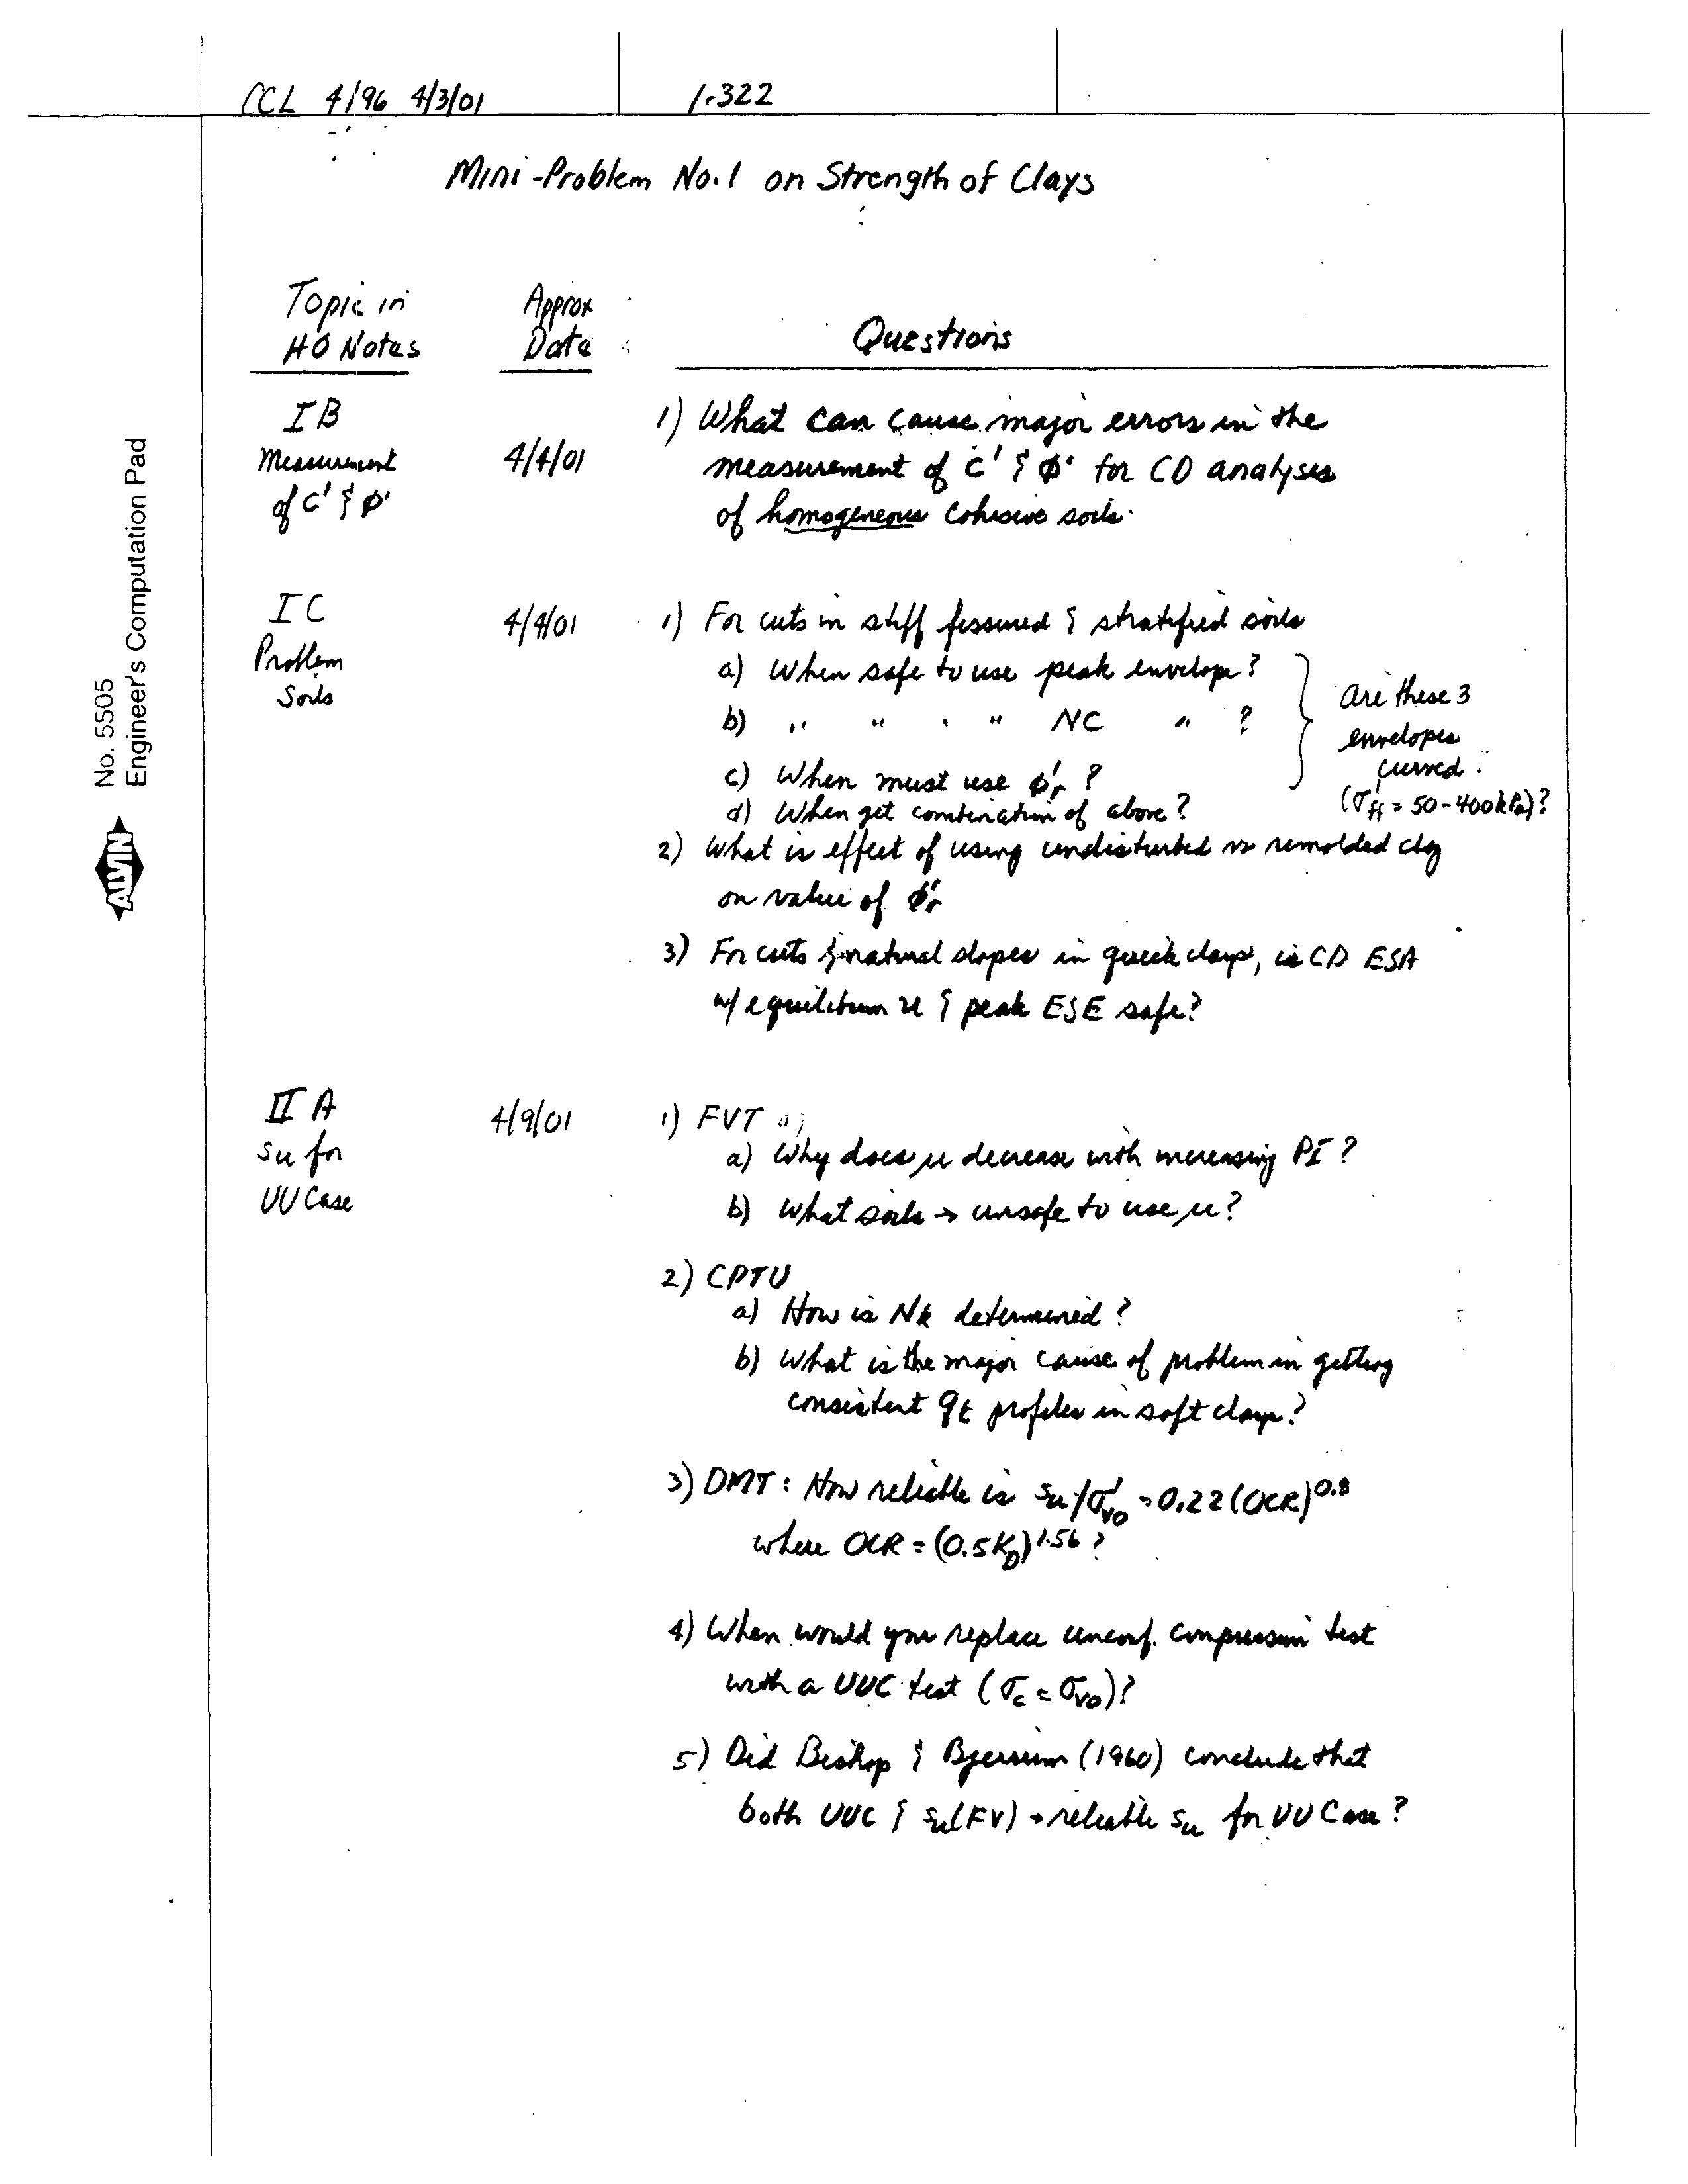 CCL 4/96 4/3/01 1.322
Mini-Problem No.1 on Strength of Clays
Topic in
HO Notes
Approx
Date
Questions
IB
Measurement
of c' & φ'
4/4/01
1) What can cause major errors in the
measurement of c' & φ' for CD analyses
of homogeneous cohesive soils.
IC
Problem
Soils
4/4/01
1) For cuts in stiff fissured & stratified soils
a) When safe to use peak envelope?
b) " " " " NC " ?
c) When must use φ'r ?
d) When get combination of above?
are these 3
envelopes
curved
(σ'ff = 50-400kPa)?
2) What is effect of using undisturbed vs remolded clay
on value of φ'r
3) For cuts & natural slopes in quick clays, is CD ESA
w/ equilibrium u & peak ESE safe?
II A
su for
UU Case
4/9/01
1) FVT
a) Why does μ decrease with increasing PI ?
b) What soils → unsafe to use μ?
2) CPTU
a) How is Nk determined ?
b) What is the major cause of problem in getting
consistent qt profiles in soft clays?
3) DMT: How reliable is su/σ'vo = 0.22(OCR)^0.8
where OCR = (0.5KD)^1.56 ?
4) When would you replace unconf. compression test
with a UUC test (σc = σvo)?
5) Did Bishop & Bjerrum (1960) conclude that
both UUC & su(FV) → reliable su for UU Case ?
No. 5505
Engineer's Computation Pad
ALVIN